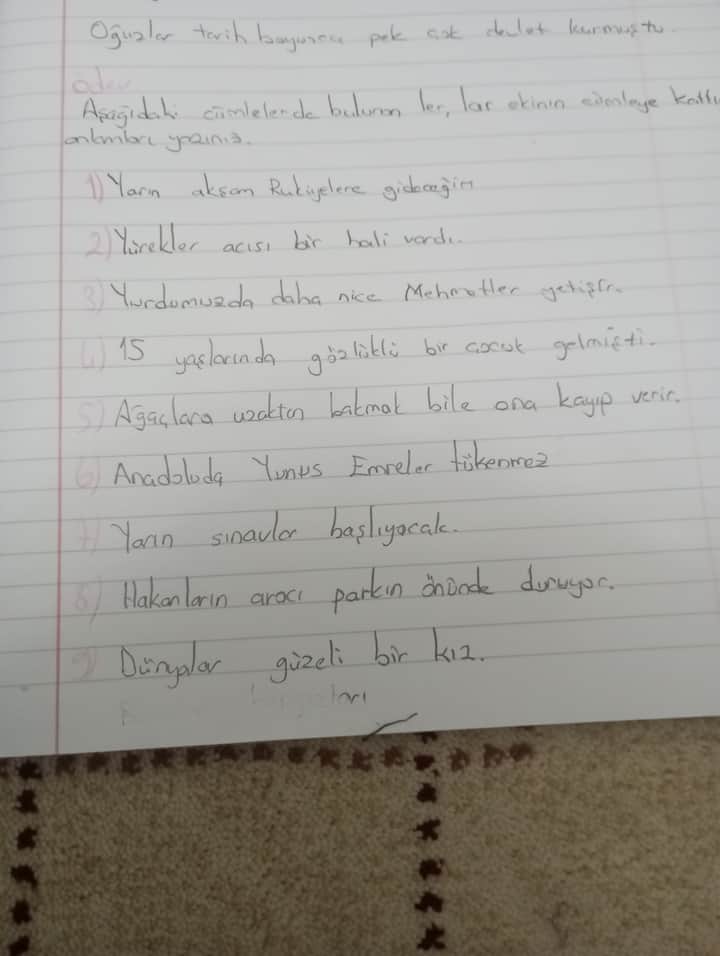 Oğuzlar tarih boyunca pek çok devlet kurmuştu.
ödev
Aşağıdaki cümlelerde bulunan ler, lar ekinin cümleye kattı
anlamları yazınız.
1) Yarın akşam Rukiyelere gideceğim
2) Yürekler acısı bir hali vardı.
3) Yurdumuzda daha nice Mehmetler yetişir.
4) 15 yaşlarında gözlüklü bir çocuk gelmişti.
5) Ağaçlara uzaktan bakmak bile ona kayıp verir.
6) Anadoluda Yunus Emreler tükenmez
7) Yarın sınavlar başlıyacak.
8) Hakanların aracı parkın önünde duruyor.
9) Dünyalar güzeli bir kız.